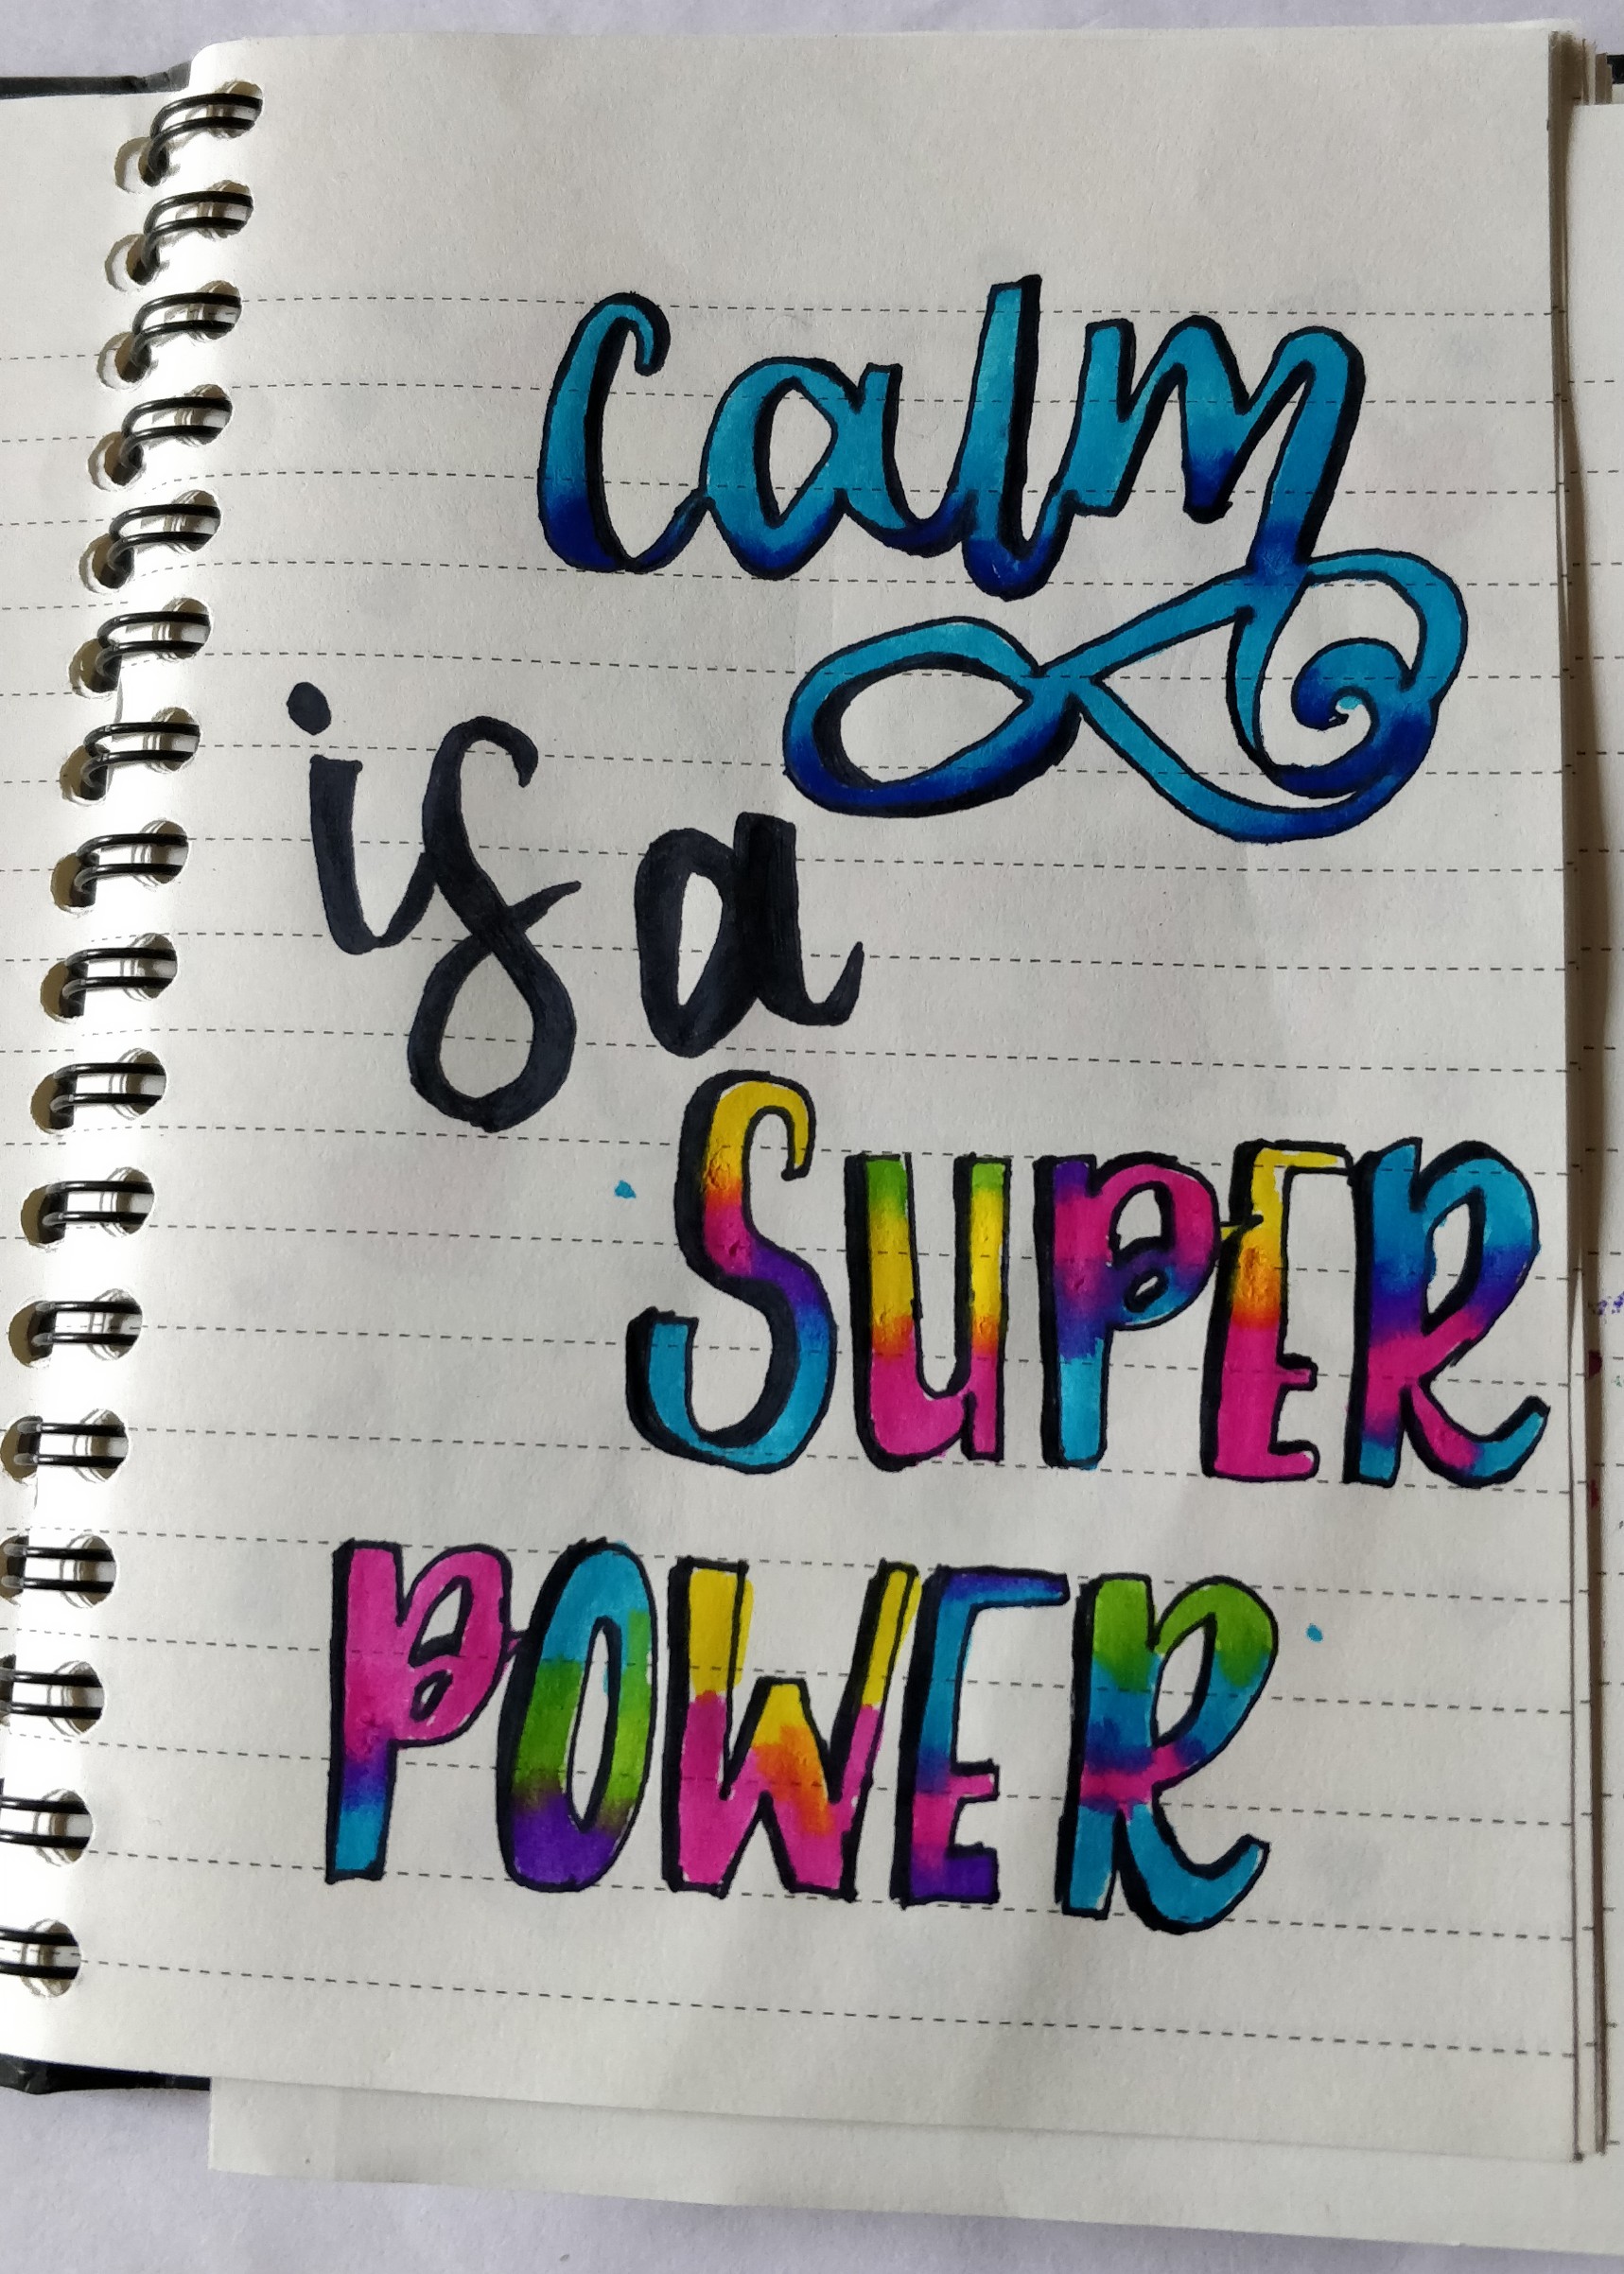 Calm
is a
SUPER
POWER